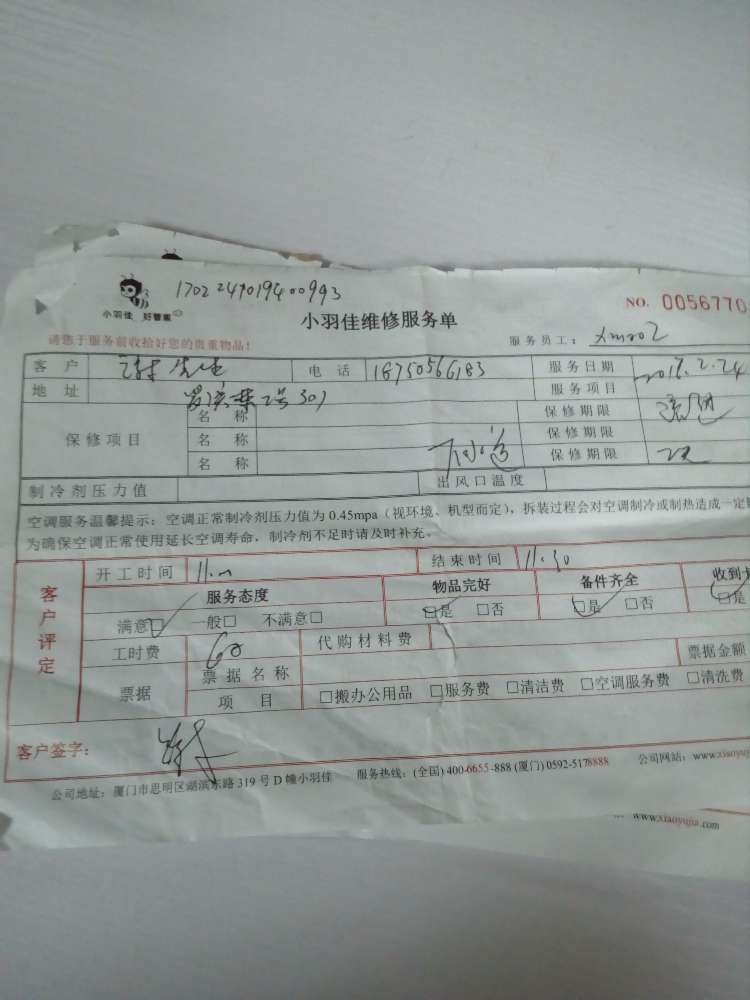 小羽佳 好管家
17022491019400993
小羽佳维修服务单
NO. 0056770
请您于服务前收拾好您的贵重物品!
服务员工:
客户 谢先生 电话 18750566183 服务日期
地址 2号301 服务项目
保修项目 名称 保修期限
名称 保修期限
名称 保修期限
制冷剂压力值 出风口温度
空调服务温馨提示:空调正常制冷剂压力值为 0.45mpa(视环境、机型而定),拆装过程会对空调制冷或制热造成一定
为确保空调正常使用延长空调寿命,制冷剂不足时请及时补充。
客户评定
开工时间 结束时间 11.30
服务态度 物品完好 备件齐全 收到
满意□ 一般□ 不满意□ □是 □否 □是 □否 □是
工时费 60 代购材料费
票据 票据名称 票据金额
项目 □搬办公用品 □服务费 □清洁费 □空调服务费 □清洗费
客户签字:
公司地址:厦门市思明区湖滨东路 319 号 D 幢小羽佳 服务热线:(全国) 400-6655-888 (厦门) 0592-5178888 公司网站:www.xiaoyujia
www.xiaoyujia.com